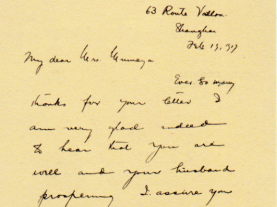 63 Route Vallon
Shanghai
Feb 19, 37
My dear Mrs
Ever so many
thanks for your letter I
am very glad indeed
to hear that you are
well and your husband
prospering I assure you